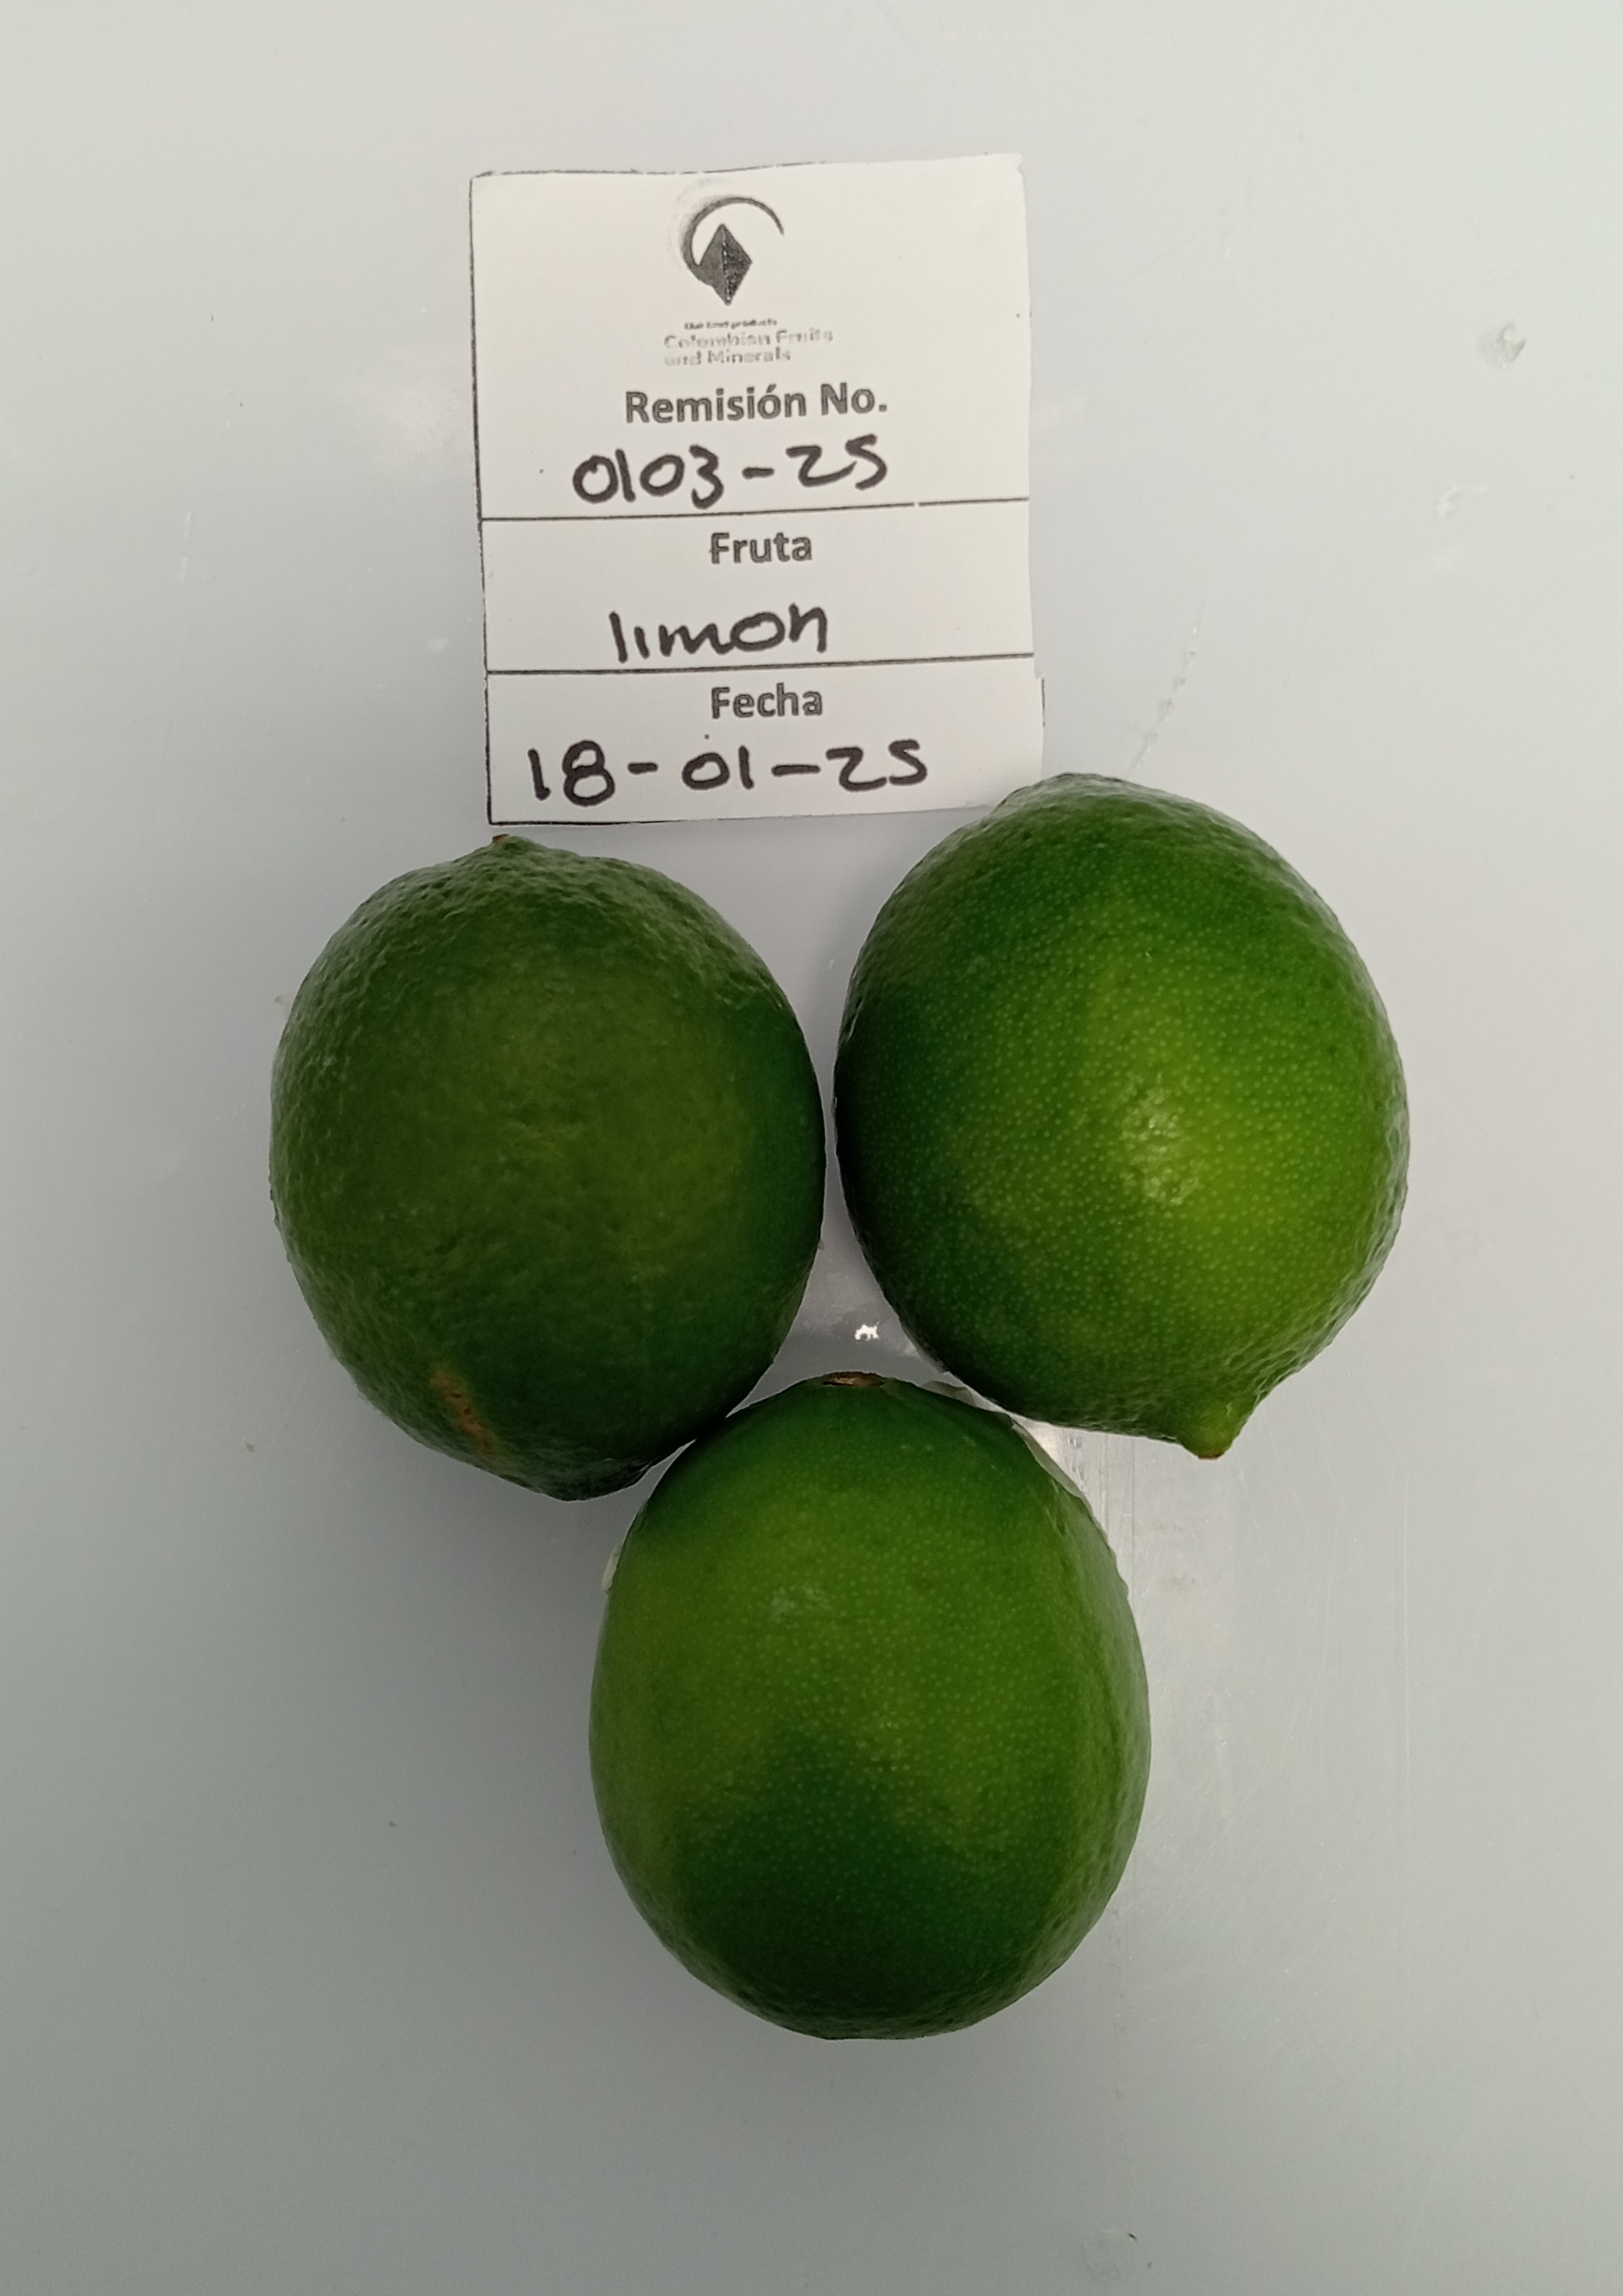 Colombian Fruits
and Minerals
Remisión No.
0103-25
Fruta
limon
Fecha
18-01-25